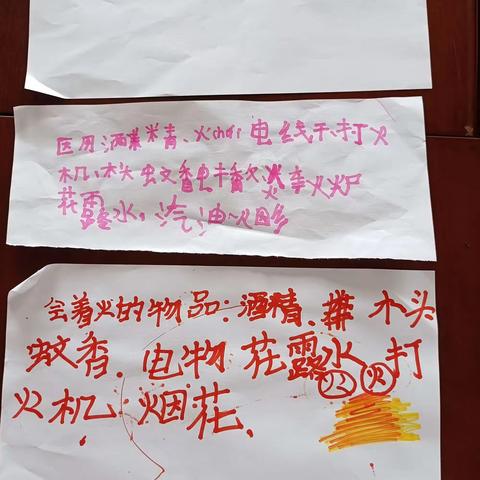 医用酒精、火chái 电线干、打火
机、木头 蚊香 香 火 火炉
花露水，汽油
会着火的物品：酒精、木头
蚊香、电物 花露水 打
火机、烟花、
火